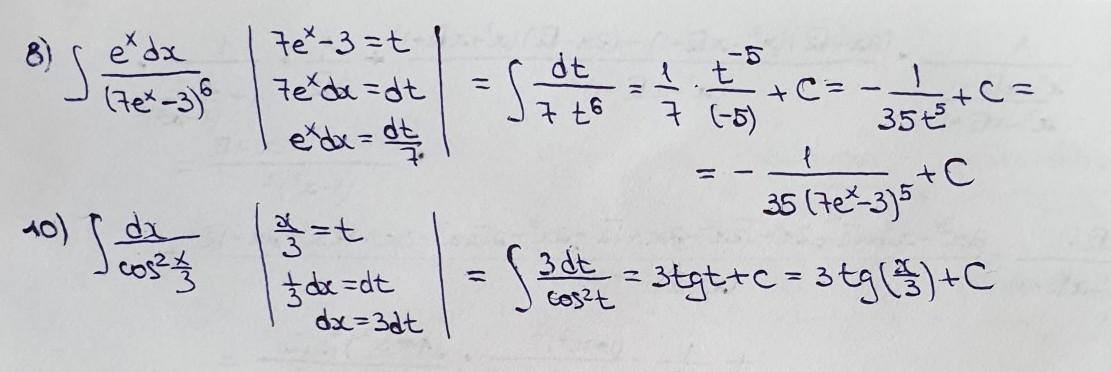 8) ∫ e^x dx / (7e^x-3)^6 | 7e^x-3 = t
7e^x dx = dt
e^x dx = dt/7 | = ∫ dt / 7 t^6 = 1/7 · t^-5 / (-5) + C = - 1 / 35t^5 + C =
= - 1 / 35 (7e^x-3)^5 + C
10) ∫ dx / cos² x/3 | x/3 = t
1/3 dx = dt
dx = 3dt | = ∫ 3dt / cos²t = 3tgt + C = 3 tg(x/3) + C